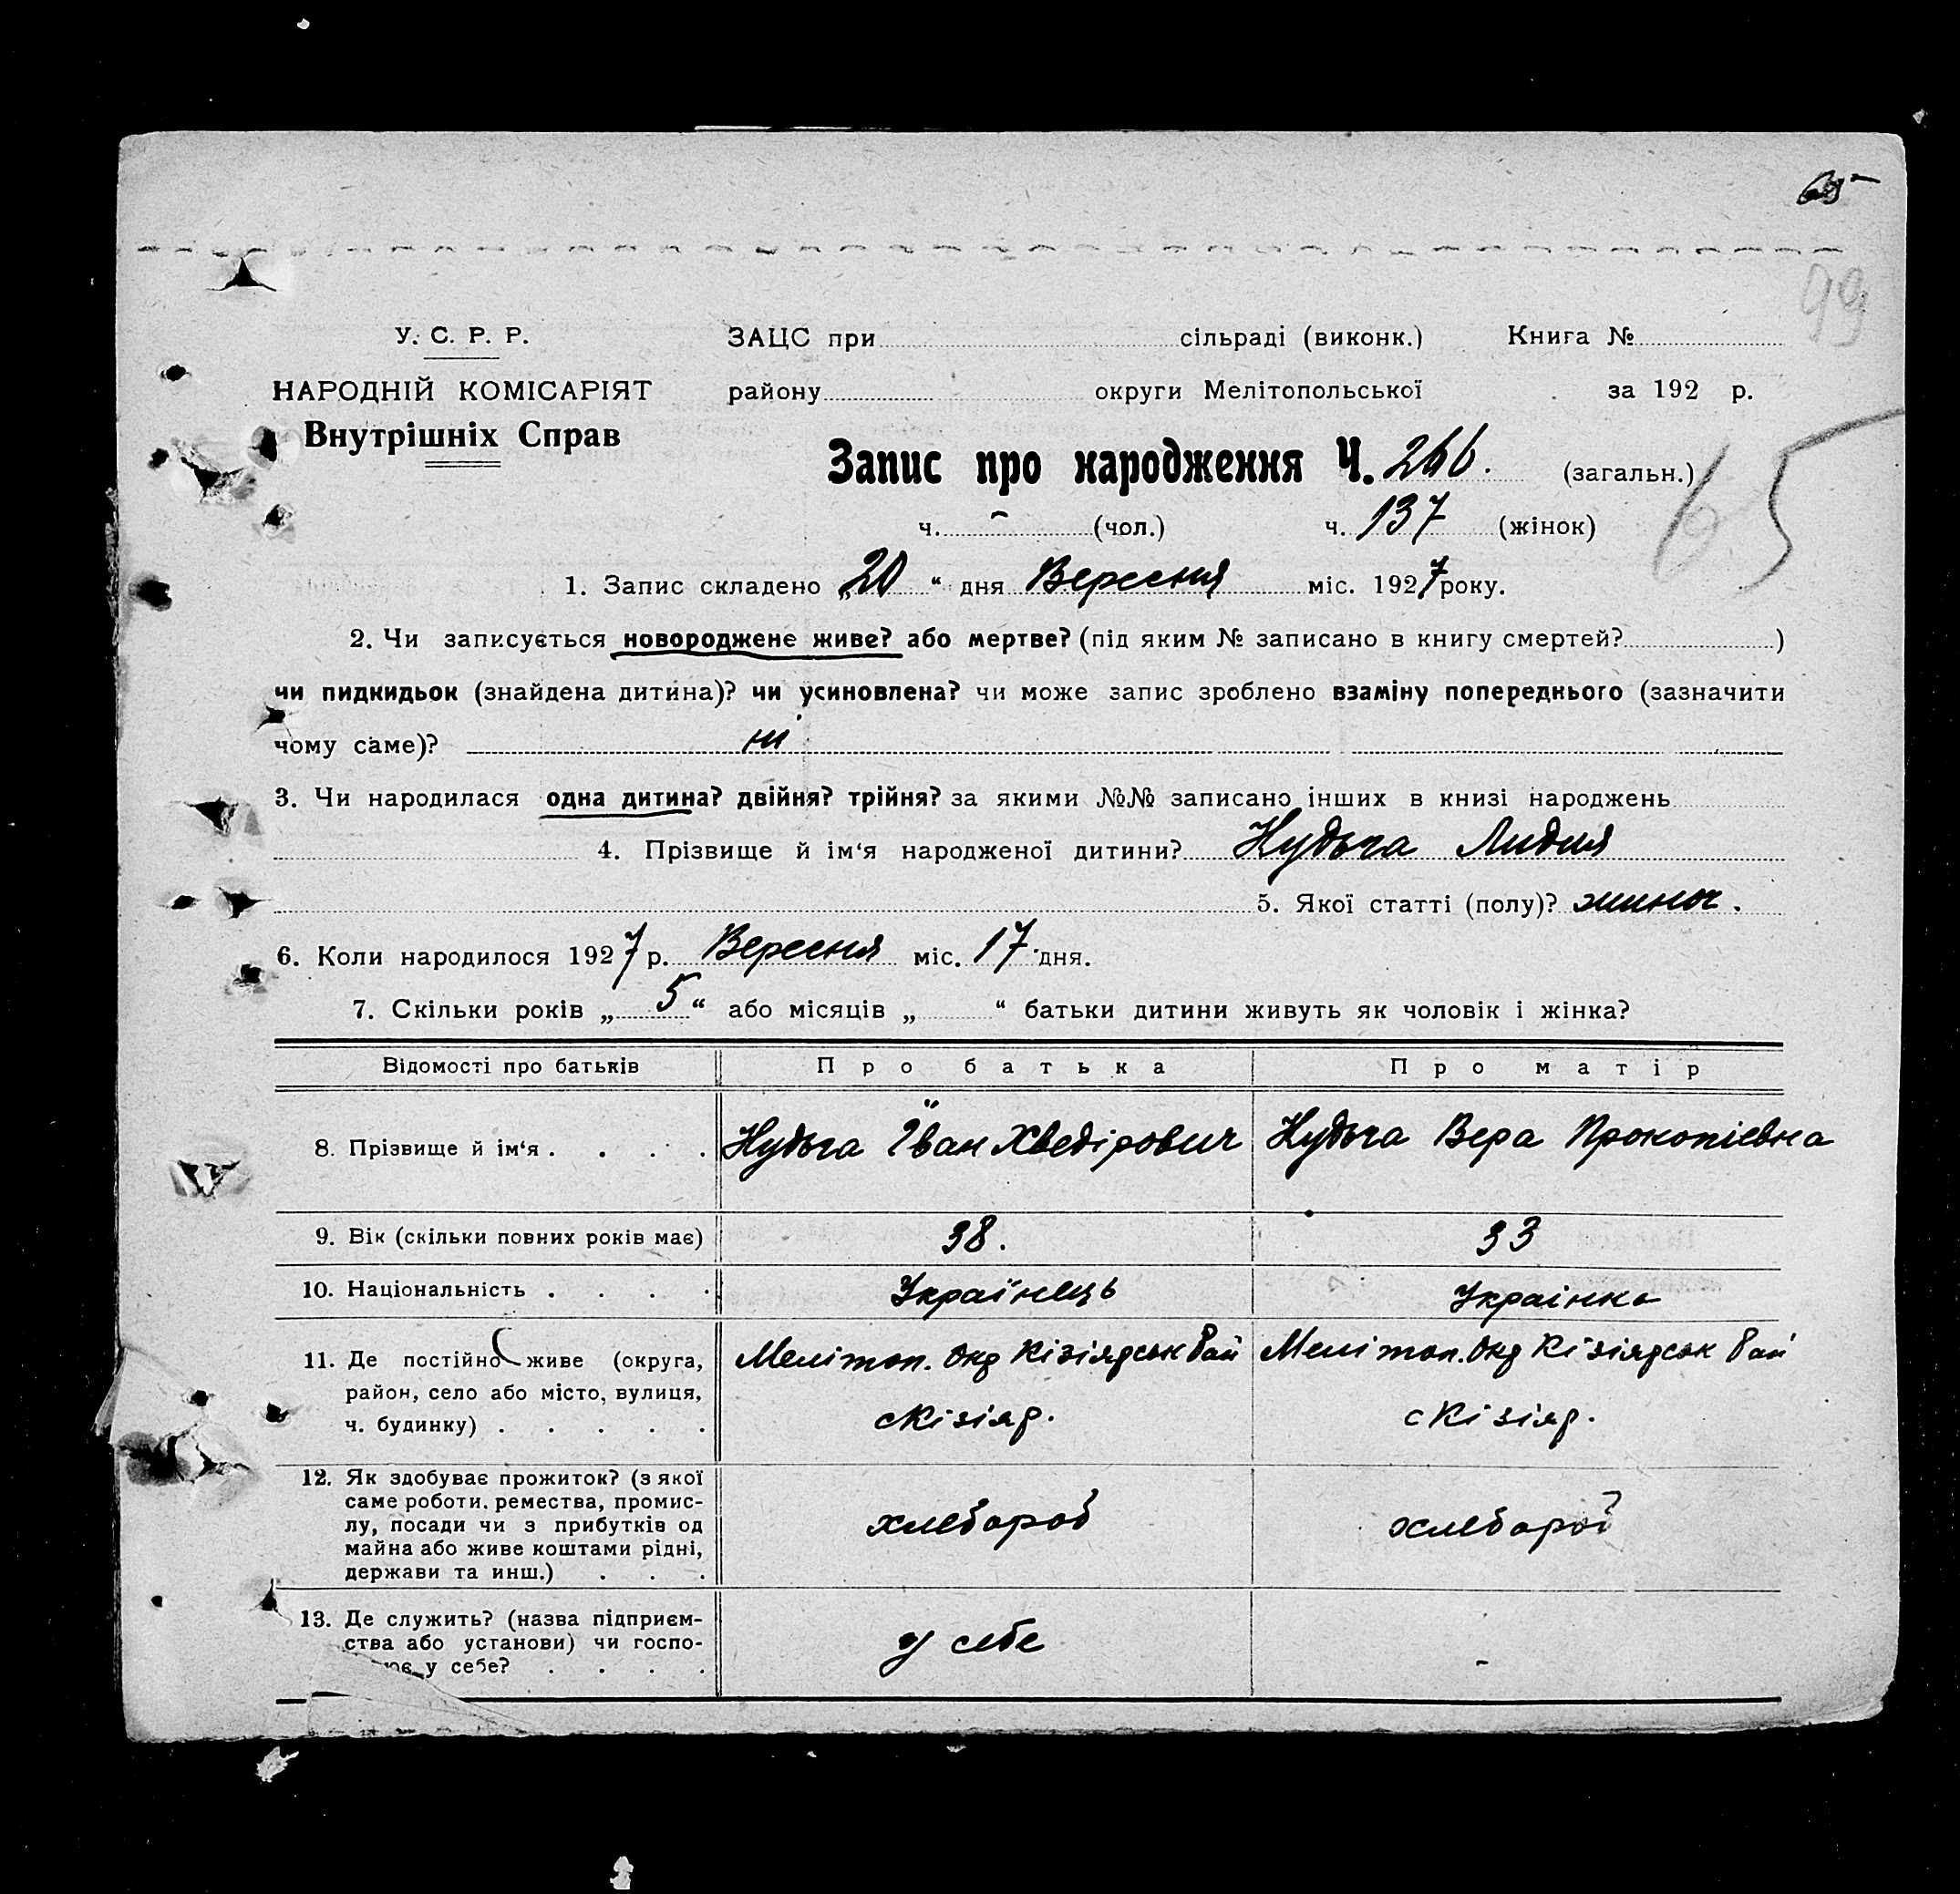 65
99
У. С. Р. Р.
ЗАЦС при сільраді (виконк.) Книга №
НАРОДНІЙ КОМІСАРІЯТ
району округи Мелітопольської за 192 р.
Внутрішніх Справ
Запис про народження Ч. 266. (загальн.)
65
ч. - (чол.) ч. 137 (жінок)
1. Запис складено „20“ дня Вересня міс. 1927 року.
2. Чи записується новороджене живе? або мертве? (під яким № записано в книгу смертей? )
чи пидкидьок (знайдена дитина)? чи усиновлена? чи може запис зроблено взаміну попереднього (зазначити
чому саме)? ні
3. Чи народилася одна дитина? двійня? трійня? за якими №№ записано інших в книзі народжень
4. Прізвище й ім‘я народженої дитини? Нудьга Лидия
5. Якої статті (полу)? жиноч.
6. Коли народилося 1927 р. Вересня міс. 17 дня.
7. Скільки років „5“ або місяців „ “ батьки дитини живуть як чоловік і жінка?
Відомості про батьків Про батька Про матір
8. Прізвище й ім‘я . . . . Нудьга Іван Хведірович Нудьга Вера Прокопієвна
9. Вік (скільки повних років має) 38. 33
10. Національність . . . . Українець Українка
11. Де постійно живе (округа, Мелітоп. Окр Кізіярськ Рай Мелітоп. Окр Кізіярськ Рай
район, село або місто, вулиця,
ч. будинку) . . . . . с Кізіяр. с Кізіяр.
12. Як здобуває прожиток? (з якої
саме роботи, ремества, промис-
лу, посади чи з прибутків од хлебороб хлебороб
майна або живе коштами рідні,
держави та инш.) . . .
13. Де служить? (назва підприєм-
ства або установи) чи госпо- у себе -
ює у себе? . . . .